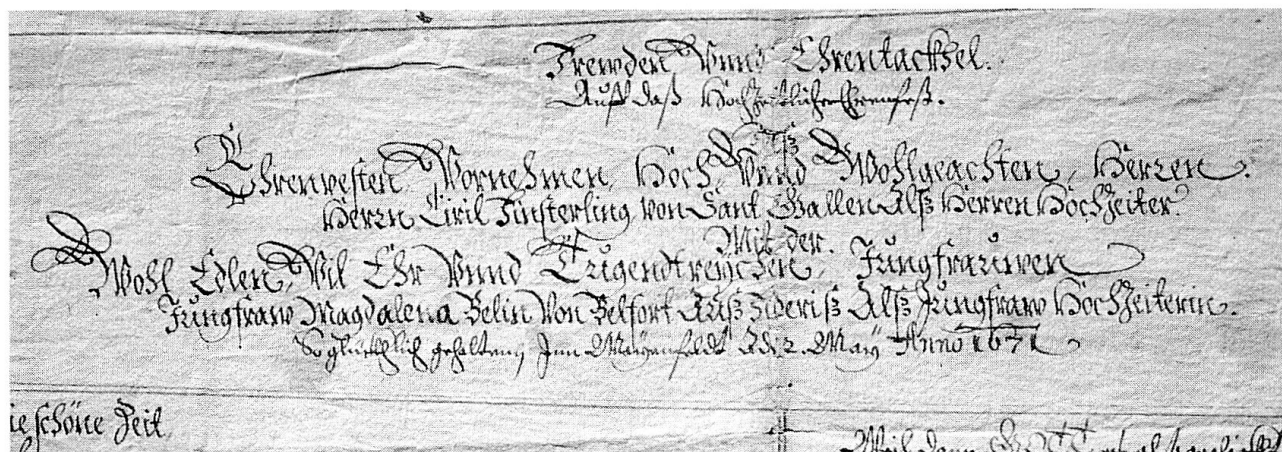 Frewden Vnnd Ehrentackſel.
Auff daß Hochzeitlicher Ehrenfeſt.
Deß
Ehrenveſten, Vornehmen, Hoch, Vnnd Wohlgeachten, Herren.
Herrn Ciril Finſterling, von Sant Gallen Alß Herren Hochzeiter.
Mit der.
Wohl Edlen, Vil Ehr Vnnd Tugendtreychen, Jungfrauwen
Jungfraw Magdalena Belin Von Belfort Auß Fideriß Alß Jungfraw Hochzeiterin.
So glücklich gehalten, Inn Mayenfeldt Ad: 2. May Anno 1671
ie ſchöne Zeit,
Weil dann